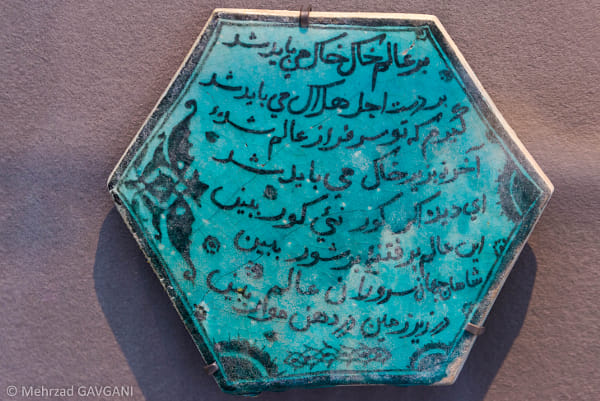 بر عالم خاک خاک می باید شد
بر دست اجل هلاک می باید شد
گیرم که تو سرفراز عالم شدهٔ
آخر نه بزیر خاک می باید شد
ای دیده اگر کور نئی کور ببین
این عالم پر فتنه و پر شور ببین
شاهان جهان سروران عالم
در زیر زمین در دهن مور ببین
© Mehrzad GAVGANI